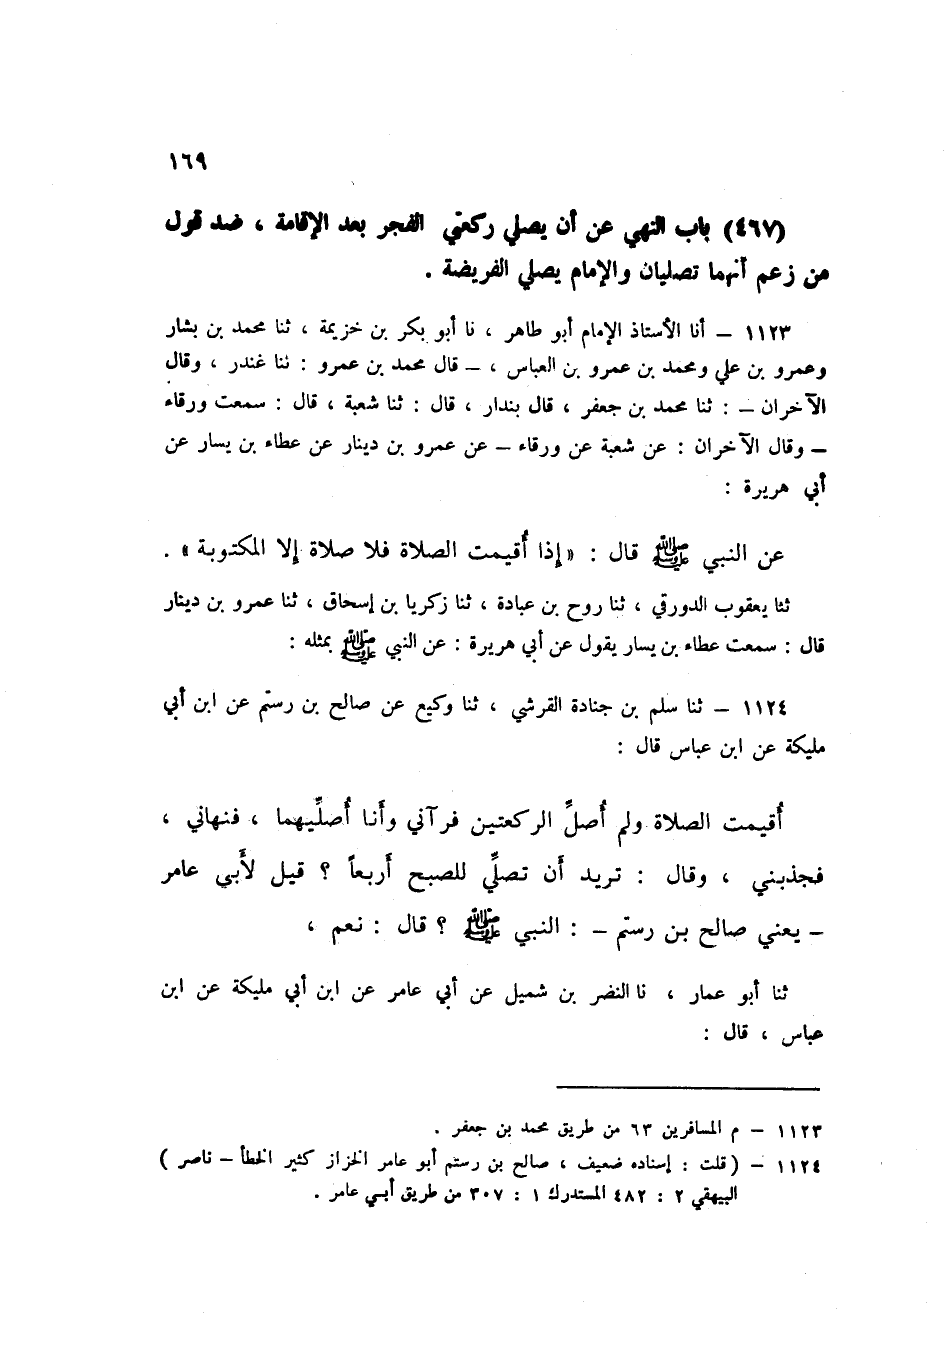 ١٦٩
(٤٦٧) باب النهي عن أن يصلي ركعتي الفجر بعد الإقامة ، ضد قول
من زعم أنهما تصليان والإمام يصلي الفريضة .
١١٢٣ – أنا الأستاذ الإمام أبو طاهر ، نا أبو بكر بن خزيمة ، ثنا محمد بن بشار
وعمرو بن علي ومحمد بن عمرو بن العباس ، – قال محمد بن عمرو : ثنا غندر ، وقال
الآخران – : ثنا محمد بن جعفر ، قال بندار ، قال : ثنا شعبة ، قال : سمعت ورقاء
– وقال الآخران : عن شعبة عن ورقاء – عن عمرو بن دينار عن عطاء بن يسار عن
أبي هريرة :
عن النبي ﷺ قال : «إذا أُقيمت الصلاة فلا صلاة إلا المكتوبة» .
ثنا يعقوب الدورقي ، ثنا روح بن عبادة ، ثنا زكريا بن إسحاق ، ثنا عمرو بن دينار
قال : سمعت عطاء بن يسار يقول عن أبي هريرة : عن النبي ﷺ بمثله :
١١٢٤ – ثنا سلم بن جنادة القرشي ، ثنا وكيع عن صالح بن رستم عن ابن أبي
مليكة عن ابن عباس قال :
أُقيمت الصلاة ولم أُصلِّ الركعتين فرآني وأَنا أُصلِّيهما ، فنهاني ،
فجذبني ، وقال : تريد أَن تصلِّي للصبح أَربعاً ؟ قيل لأَبي عامر
– يعني صالح بن رستم – : النبي ﷺ ؟ قال : نعم ،
ثنا أبو عمار ، نا النضر بن شميل عن أبي عامر عن ابن أبي مليكة عن ابن
عباس ، قال :
١١٢٣ – م المسافرين ٦٣ من طريق محمد بن جعفر .
١١٢٤ – (قلت : إسناده ضعيف ، صالح بن رستم أبو عامر الخزاز كثير الخطأ – ناصر )
البيهقي ٢ : ٤٨٢ المستدرك ١ : ٣٠٧ من طريق أبي عامر .